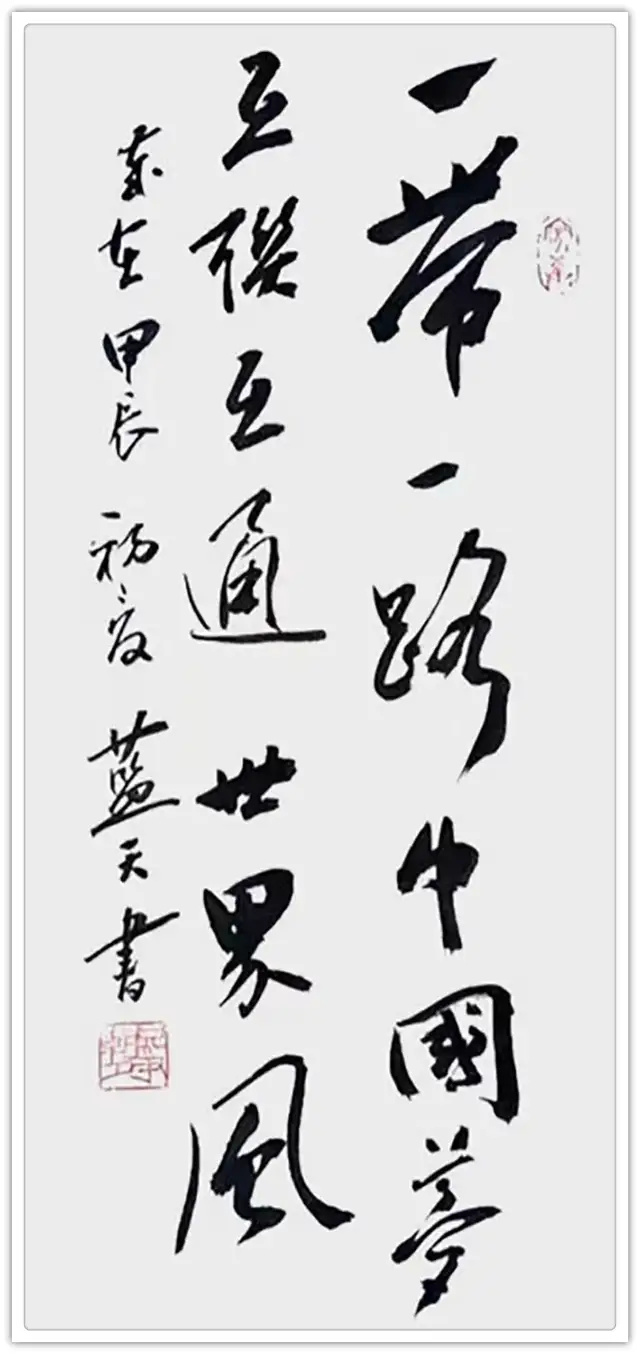 一帶一路中國夢
互聯互通世界風
歲在甲辰初夏藍天書